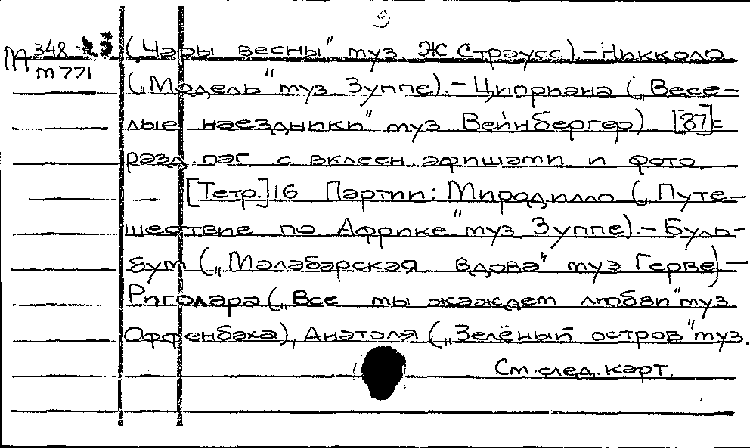 9
М 348-23 („Чары весны" муз Ж Страусс).–Никколо
м 771 („Модель" муз Зуппе).–Циприана („Весе-
лые наездники" муз Вейнбергер) [87]=
разд паг с вклеен афишами и фото
[Тетр.]16 Партии: Мирадилло („Путе-
шествие по Африке" муз Зуппе).–Буль-
бум („Малабарская вдова" муз Герве)–
Риголара („Все мы жаждем любви" муз
Оффенбаха), Анатоля („Зелёный остров" муз.
См. след. карт.